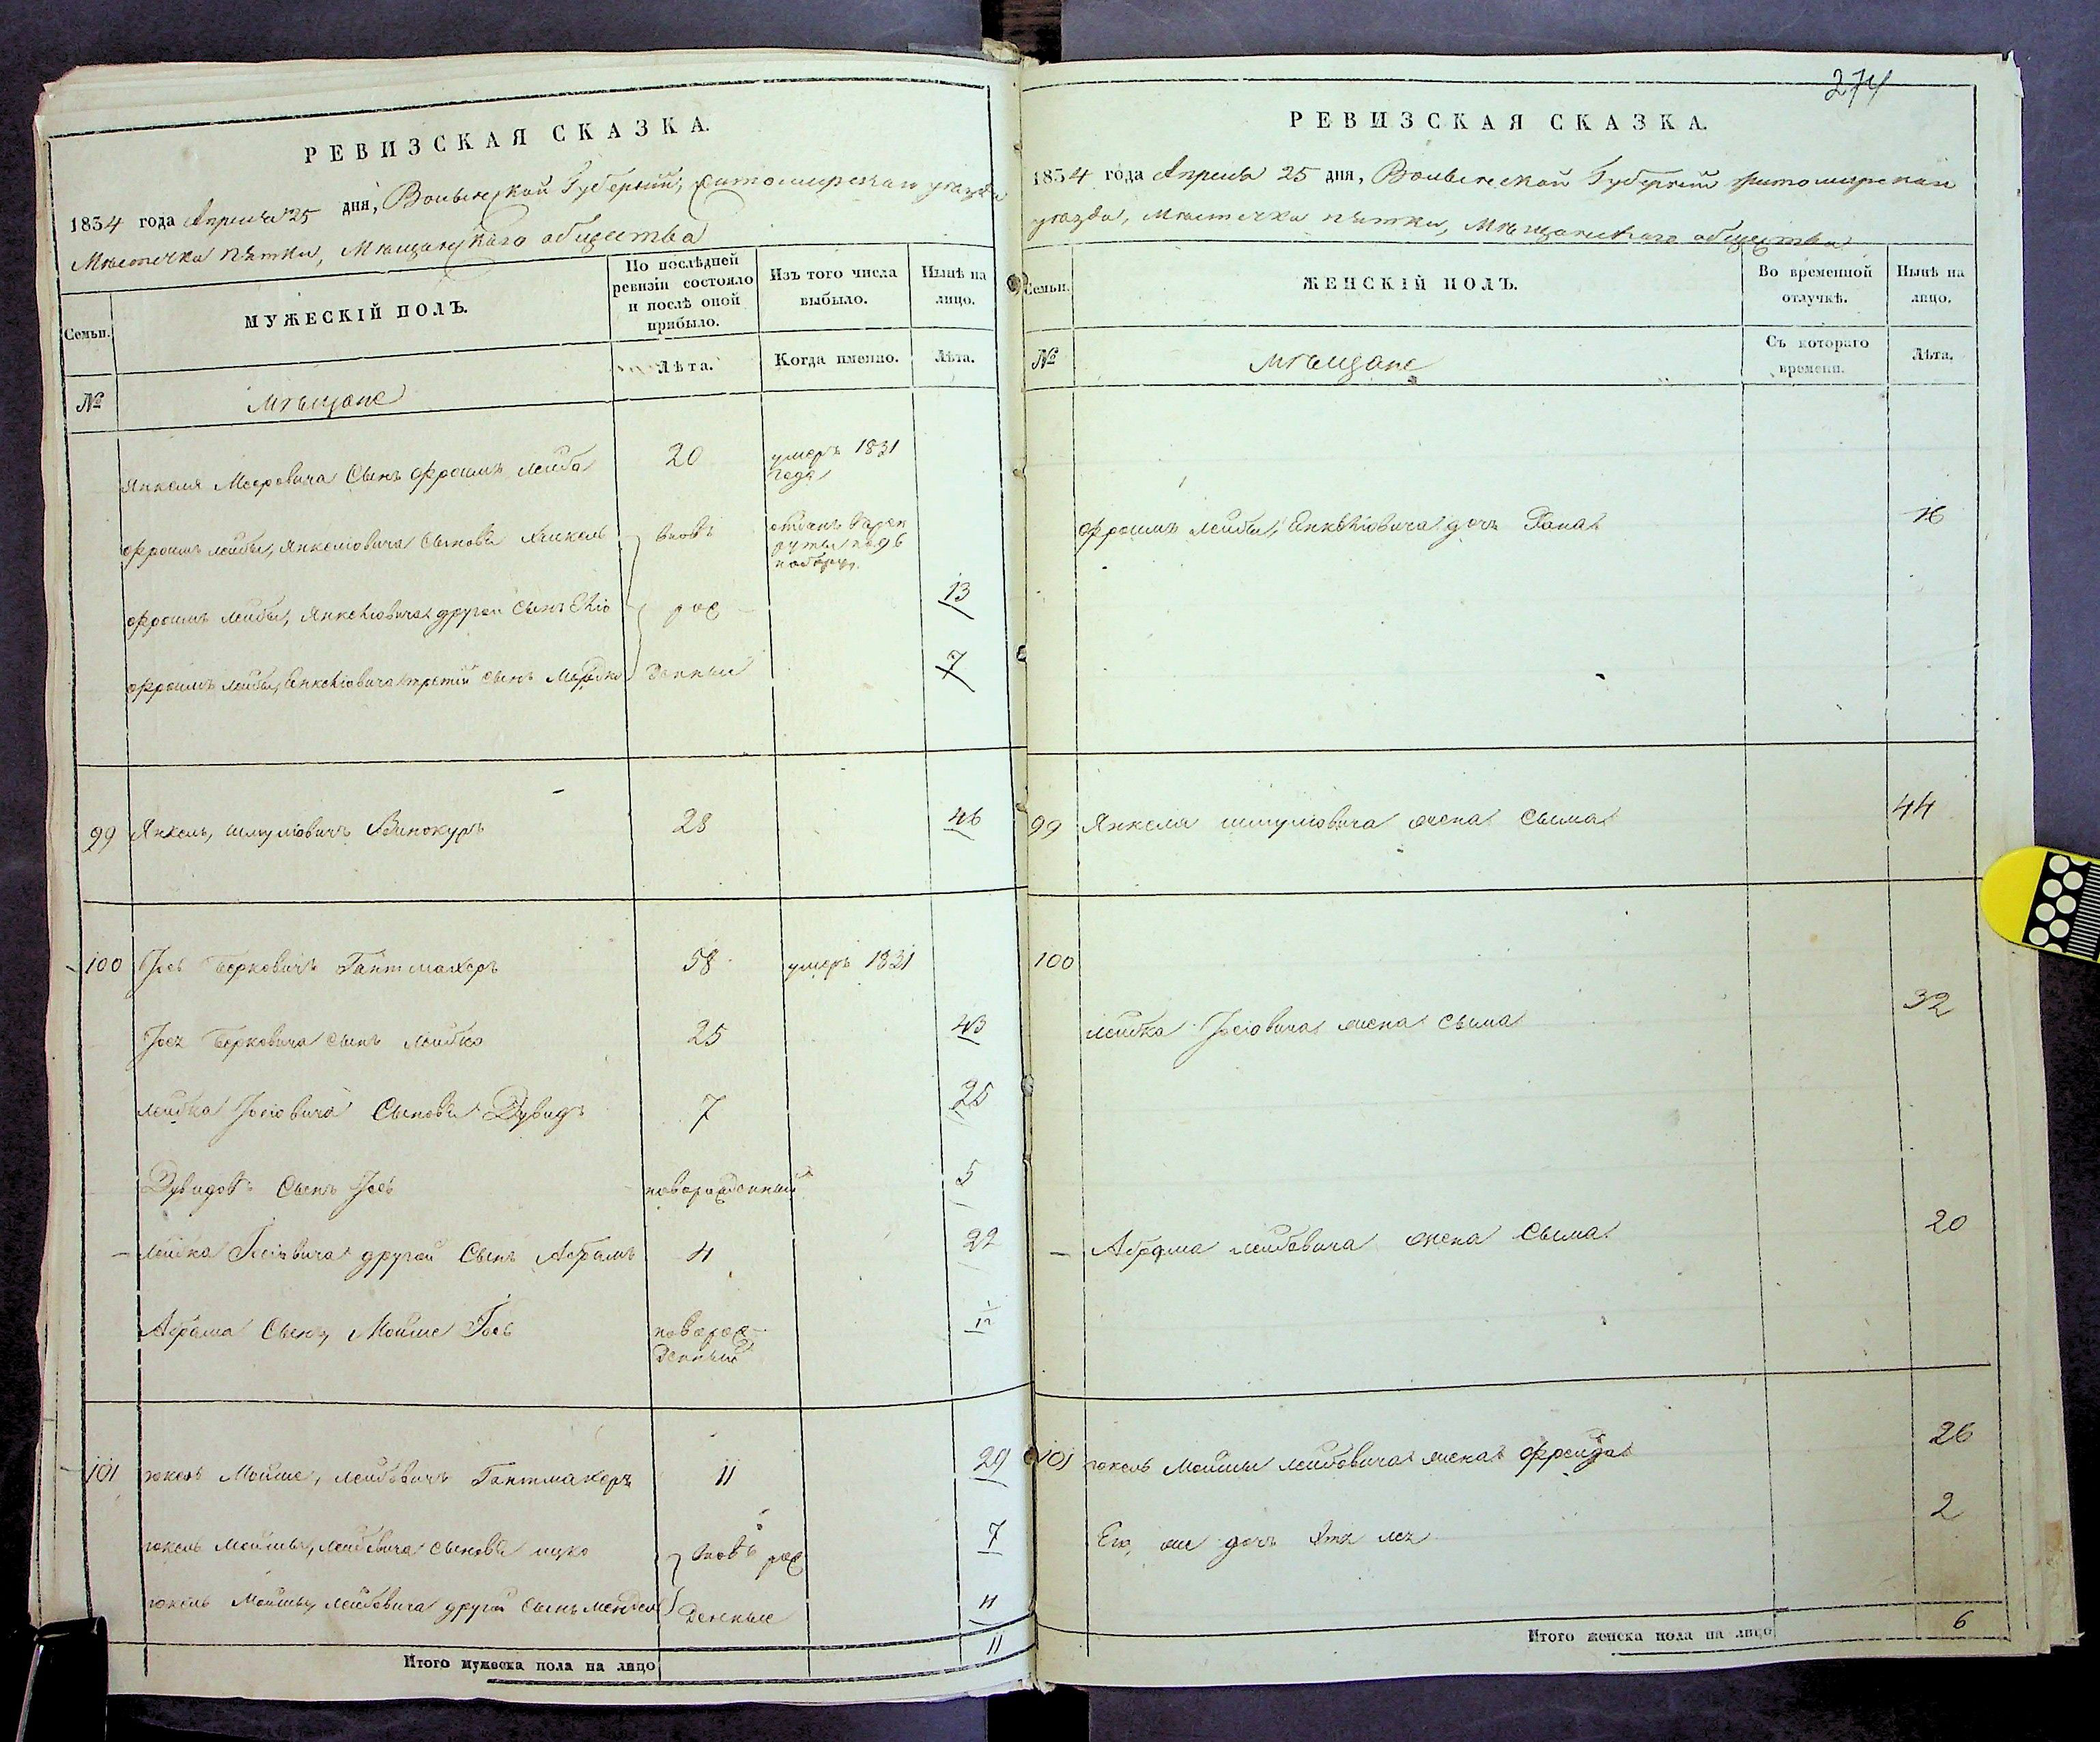 РЕВИЗСКАЯ СКАЗКА.
1834 года Апреля 25 дня, Волынской Губернии, Житомирскаго уезда
Местечка Пятки, Мещанского общества
Семьи.
МУЖЕСКІЙ ПОЛЪ.
По послѣдней ревизіи состояло и послѣ оной прибыло.
Изъ того числа выбыло.
Нынѣ на лицо.
№
Мѣщане
Лѣта.
Когда именно.
Лѣта.
Янкеля Мееровича Сынъ Фроимъ Лейба 20 умеръ 1831 года
Фроимъ Лейбы, Янкелiовича Сыновья Янкель вновь
Фроимъ Лейбы, Янкелiовича другой Сынъ рож 13
Фроимъ Лейбы, Янкелiовича третiй Сынъ Мордко денныи 7
99 Янкель, Шмулiовичъ Винокуръ 28 46
100 Iось Берковичъ Гантмахеръ 58 умеръ 1831
Iося Берковича сынъ Лейбко 25 43
Лейбка Iосiовича Сыновья Дувидъ 7 25
Дувидовъ Сынъ Iось новорожденный 5
Лейбка Iосiовича другой Сынъ Абрамъ 4 22
Абрама Сынъ Мойше Iось новорож
денный
101 Юкель Мойше, Лейбовичъ Гантмахеръ 11 29
Юкель Мойшы, Лейбовича сыновья Ицко вновь рож 7
Юкель Мойшы, Лейбовича другой Сынъ Мендель денные 4
Итого мужеска пола на лицо 11
274
РЕВИЗСКАЯ СКАЗКА.
1834 года Апреля 25 дня, Волынской Губернии Житомирскаго
уезда, Местечка Пятки, Мещанскаго общества
Семьи.
ЖЕНСКІЙ ПОЛЪ.
Во временной отлучкѣ.
Нынѣ на лицо.
№
Мѣщане
Съ котораго времени.
Лѣта.
Фроимъ Лейбы, Янкелiовича дочь Хана 16
99 Янкеля Шмулiовича жена Сыма 44
100
Лейбка Iосiовича жена Сыма 32
Абрама Лейбовича жена Сыма 20
101 Юкель Мойшы Лейбовича жена Фрейда 26
Его же дочь 2
Итого женска пола на лицо 6